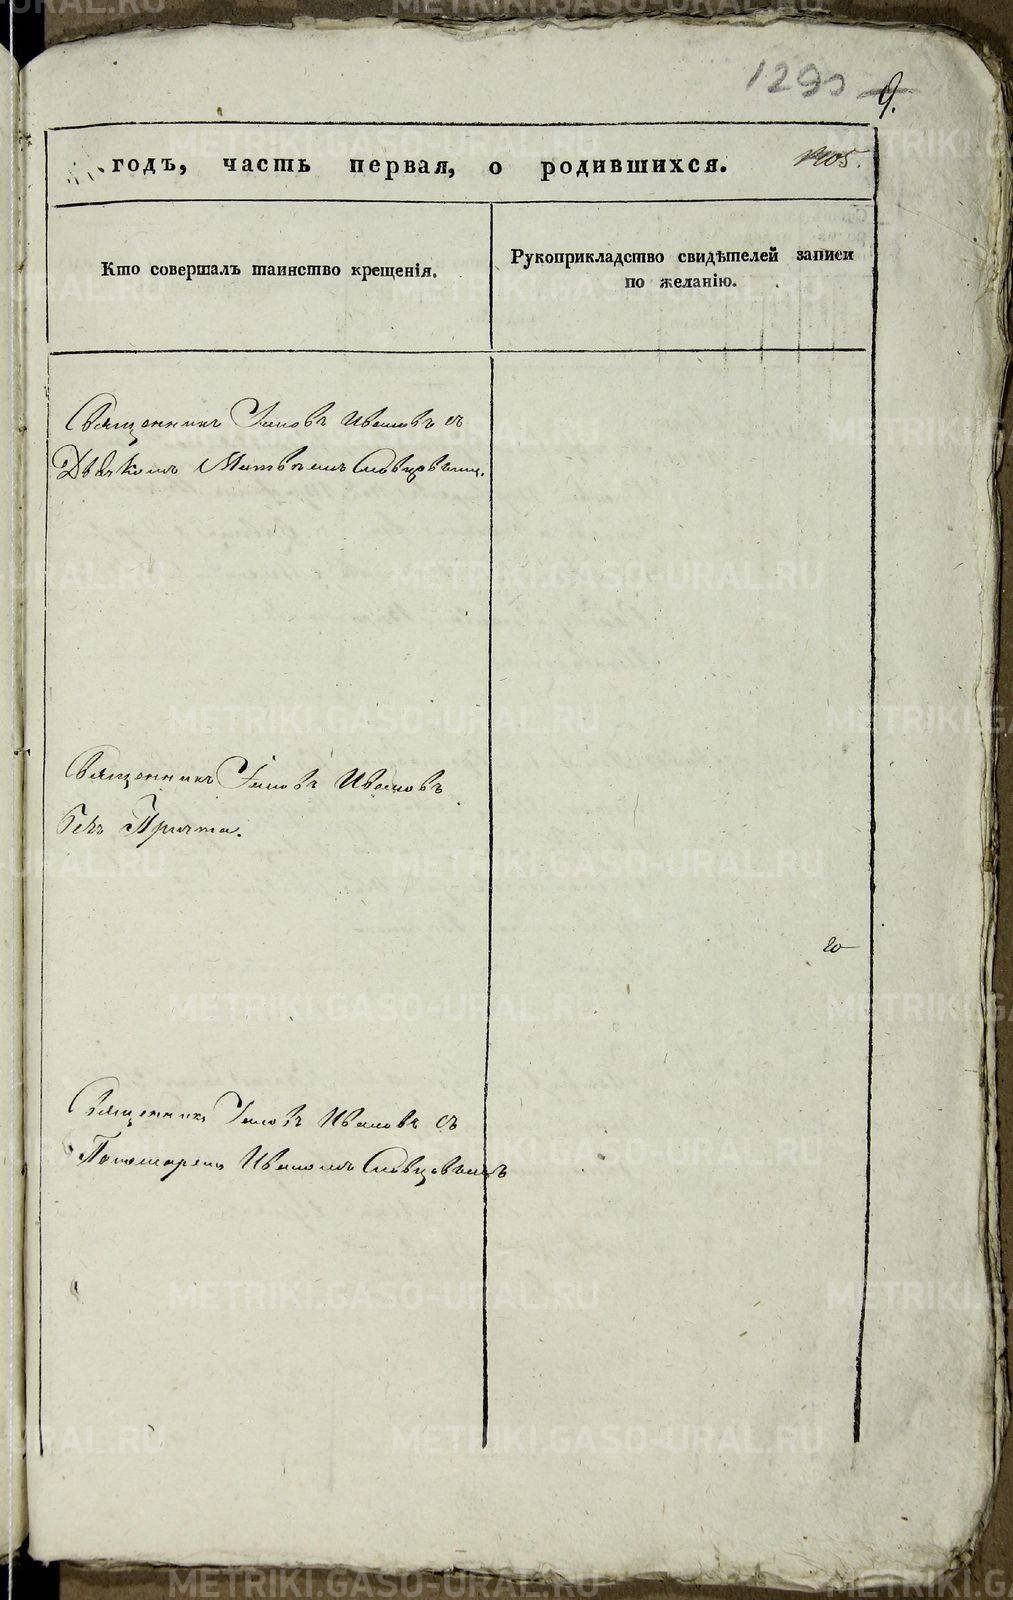 1290 9.
годъ, часть первая, о родившихся. 1205.
Кто совершалъ таинство крещенія.
Рукоприкладство свидѣтелей записи
по желанію.
Священникъ Іаковъ Ивановъ съ
Дьячкомъ Матвѣемъ Словцовымъ.
Священникъ Іаковъ Ивановъ
безъ Причта.
20
Священникъ Іаковъ Ивановъ съ
Пономаремъ Иваномъ Словцовымъ
METRIKI.GASO-URAL.RU